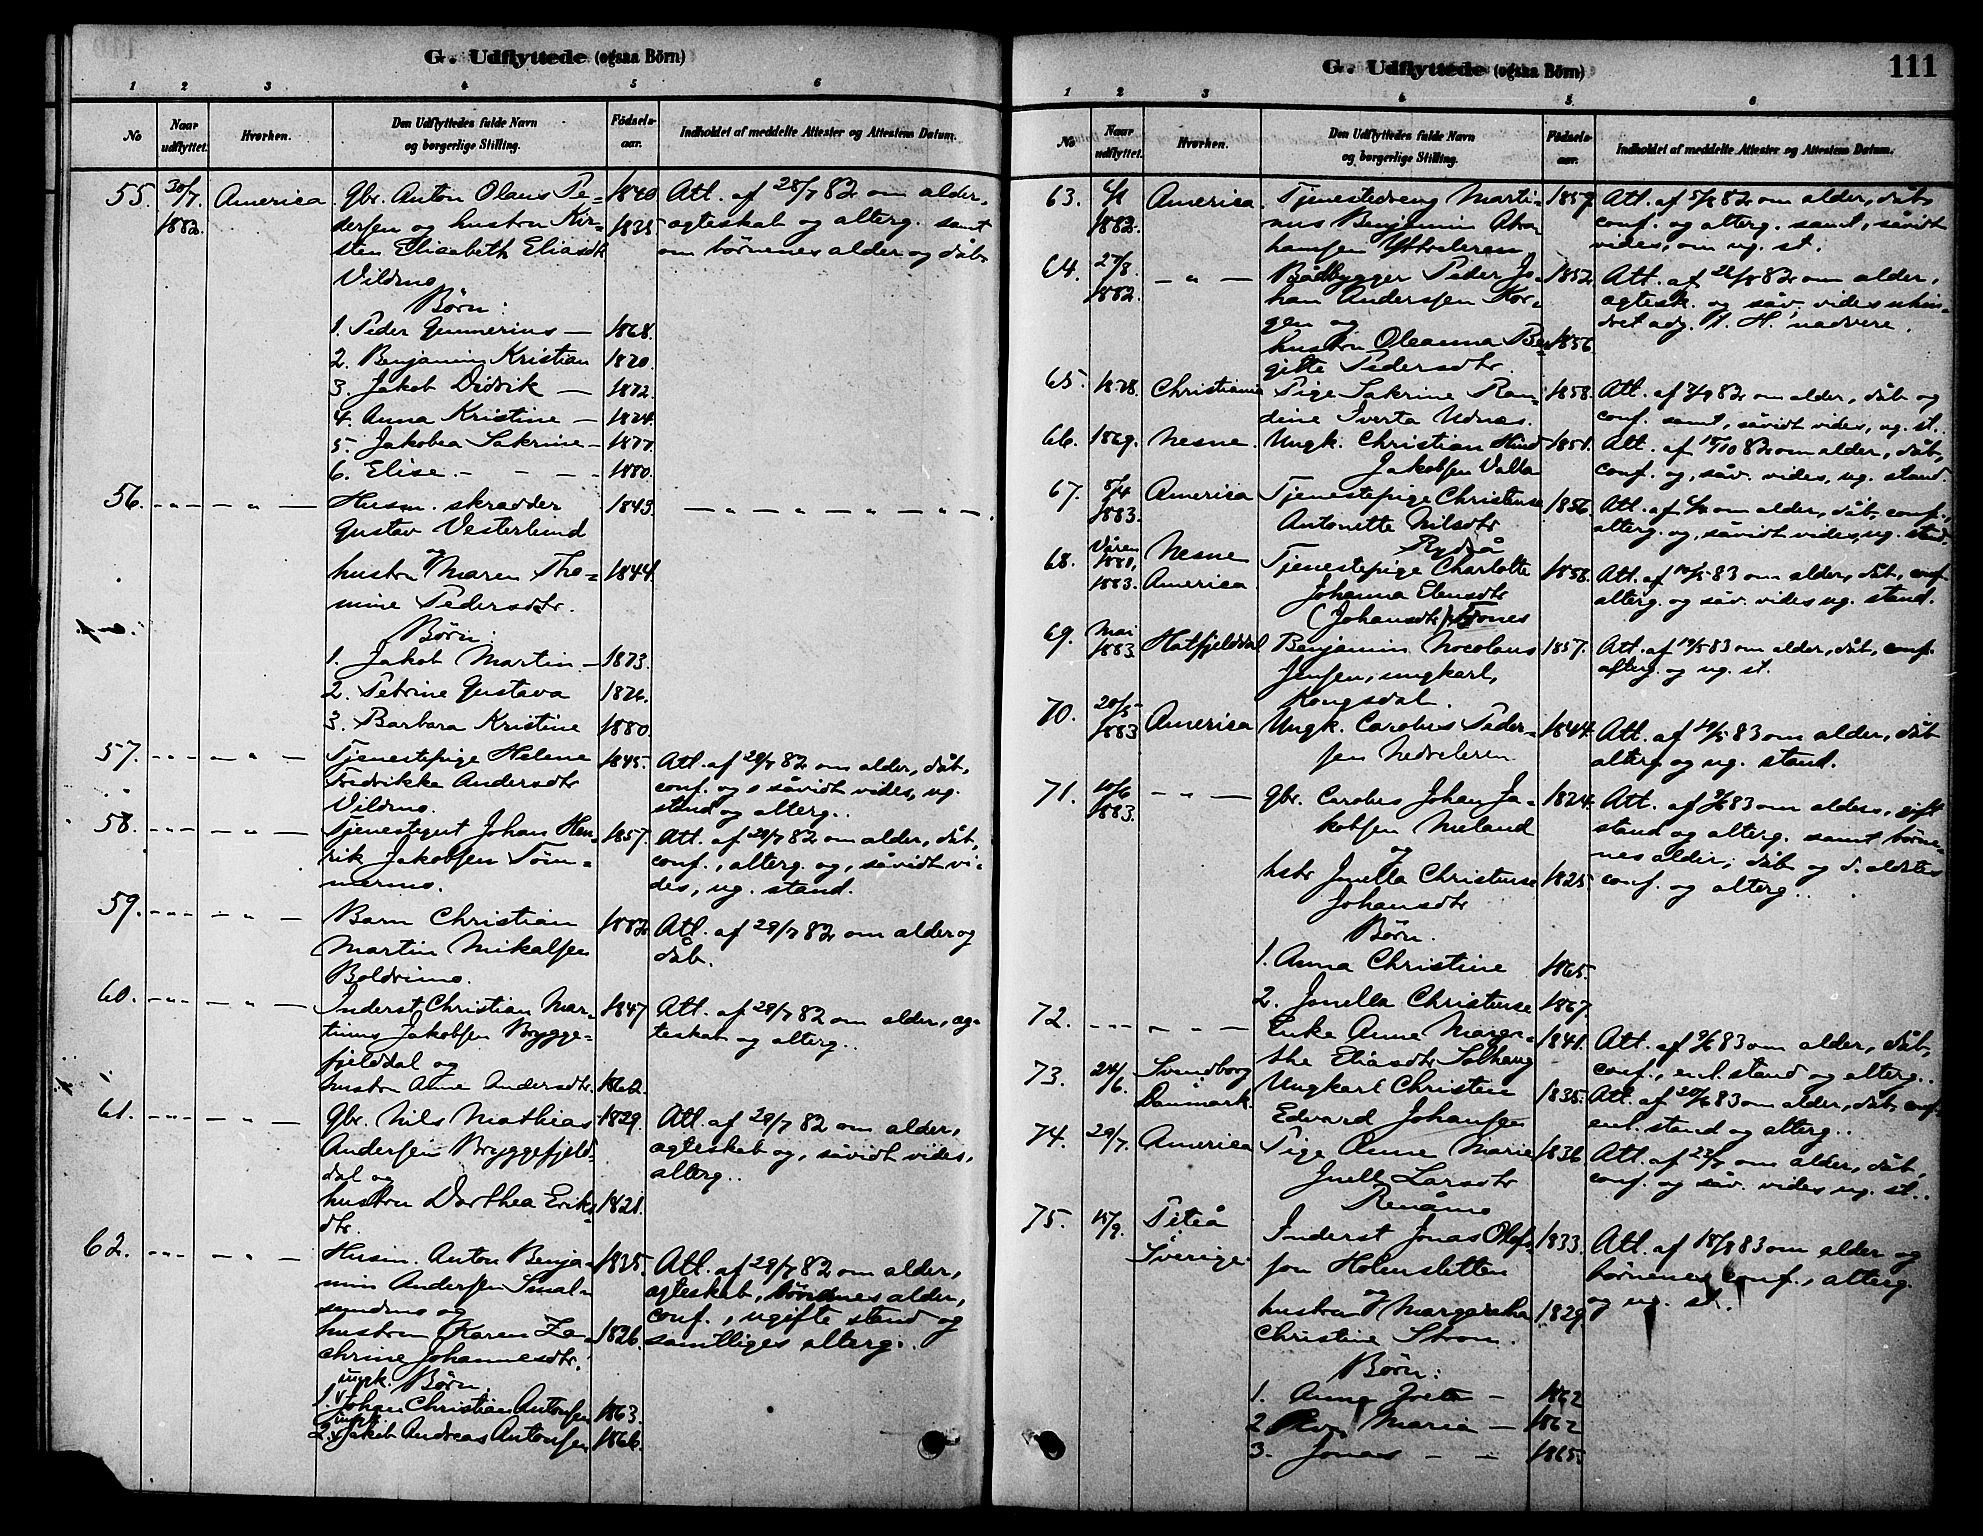 G. Udflyttede (ogsaa Børn)
1 2 3 4 5 6
No
Naar udflyttet.
Hvorhen.
Den Udflyttedes fulde Navn og borgerlige Stilling.
Fødsels-aar.
Indholdet af meddelte Attester og Attestens Datum.
55. 30/7. America. Gbr. Anton Olaus Pe- 1840 Att. af 28/7 82 om alder,
1882. dersen og hustru Kir- 1835 ægteskab og alterg. samt
sten Elisabeth Eliasdtr om børnenes alder og dåb.
Vildmo.
Børn:
1. Peder Gunnerius — 1868.
2. Benjamin Kristian 1870.
3. Jakob Didrik — 1872.
4. Anna Kristine — 1874.
5. Jakobea Sakrine — 1877.
6. Elise. - - - - 1880.
56. - " - - " - Husm. skrædder 1843. - " - " - " - " -
Gustav Vesterlund
og
hustru Maren Tho- 1844.
mine Pedersdtr.
Børn:
1. Jakob Martin — 1873.
2. Petrine Gustava 1876.
3. Barbara Kristine 1880.
57. - " - - " - Tjenestepige Helene 1845. Att. af 29/7 82 om alder, dåb,
Fredrikke Andersdtr conf. og såvidt vides, ug.
Vildmo. stand og alterg..
58. - " - - " - Tjenestegut Johan Hen- 1857. Att. af 29/7 82 om alder, dåb,
rik Jakobsen Töm- conf., alterg. og, såvidt vi-
mermo. des, ug. stand.
59. - " - - " - Barn Christian 1882 Att. af 29/7 82 om alder og
Martin Mikalsen dåb.
Boldrimo.
60. - " - - " - Inderst Christian Mar- 1847 Att. af 29/7 82 om alder, æg-
tinus Jakobsen Brygge- teskab og alterg..
fjelddal og
hustru Ane Andersdtr. 1862.
61. - " - - " - Gbr. Nils Mathias 1829. Att. af 29/7 82 om alder,
Andersen Bryggefjeld- ægteskab og, såvidt vides,
dal og alterg..
hustru Dorthea Eriks- 1821.
dtr.
62. - " - - " - Husm. Anton Benja- 1835. Att. af 29/7 82 om alder,
min Andersen Smal- ægteskab, børnenes alder,
sundmo og conf., ugifte stand og
hustru Karen Za- 1826. samtliges alterg..
chrine Johannesdtr.
ungk. Børn.
1. Johan Christian Antonsen 1863.
ungk.
2. Jakob Andreas Antonsen 1866.
G. Udflyttede (ogsaa Børn)
111
1 2 3 4 5 6
No
Naar udflyttet.
Hvorhen.
Den Udflyttedes fulde Navn og borgerlige Stilling.
Fødsels-aar.
Indholdet af meddelte Attester og Attestens Datum.
63. America. Tjenestedreng Marti- 1859. Att. af 5/8 82 om alder, dåb,
1882. nus Benjamin Abra- conf. og alterg. samt, såvidt
hamsen Ytterleren vides, om ug. st.
64. 27/8. - " - Bådbygger Peder Jo- 1852. Att. af 26/8 82 om alder,
1882. han Andersen Kor- ægtesk. og såv. vides uhin-
gen og dret adg. t. H. nadvere.
hustru Oleanna Be- 1856.
gitte Pedersdtr.
65. 1878. Christiania Pige Sakrine Ran- 1858. Att. af 7/9 82 om alder, dåb og
dine Iverta Udnæs. conf. samt, såvidt vides, ug. st..
66. 1869. Nesne. Ungk. Christian Hind 1851. Att. af 15/10 82 om alder, dåb,
Jakobsen Valla conf. og, såv. vides, ug. stand.
67. 5/4 America Tjenestepige Christense 1856. Att. af om alder, dåb, conf.,
1883. Antonette Nilsdtr alterg. og, såvidt vides, ug. stand.
Rydså
68. Våren Nesne Tjenestepige Charlotte 1858. Att. af 10/5 83 om alder, dåb, conf.
1881, 1883. America. Johanna Elensdtr alterg. og såv. vides ug. stand.
(Johansdtr) Fornes
69. Mai Hatfjelddal Benjamin Nocolaus 1857. Att. af 19/5 83 om alder, dåb, conf.
1883. Jensen, ungkarl, alterg. og ug. st.
Kongsdal.
70. 20/5 America Ungk. Carolus Peder- 1844. Att. af 19/5 83 om alder, dåb
1883 sen Nedreleren. alterg. og ug. stand.
71. 10/6 - " - Gbr. Carolus Johan Ja- 1824. Att. af 9/6 83 om alders, gift
1883. kobsen Meland stand og alterg. samt børne-
og nes alder, dåb og d. ældstes
hstr Jonella Christense 1825. conf. og alterg..
Johansdtr
Børn.
1. Anna Christine 1865.
2. Jonella Christense 1867.
72. - " - - " - Enke Anne Marga- 1841. Att. af 9/6 83 om alder, dåb,
the Eliasdtr Solhaug conf., enl. stand og alterg..
73. 24/6 Svendborg Ungkarl Christen 1835. Att. af 20/6 83 om alder, dåb, conf.
Danmark. Edvard Johansen enl. stand og alterg..
74. 29/7. America Pige Anne Marie 1836. Att. af 23/7 om alder, dåb,
Inell Larsdtr conf. og såv. vides ug. st..
Renåmo
75. 15/9. Piteå Inderst Jonas Olofs- 1833. Att. af 18/8 83 om alder og
Sverige. son Holmsletten børnenes conf., alterg.
og og ug. st..
hustru Margaretha 1829
Christine Strom.
Børn:
1. Anna - 1862
2 Maria — 1862
3. Jonas - - 1865